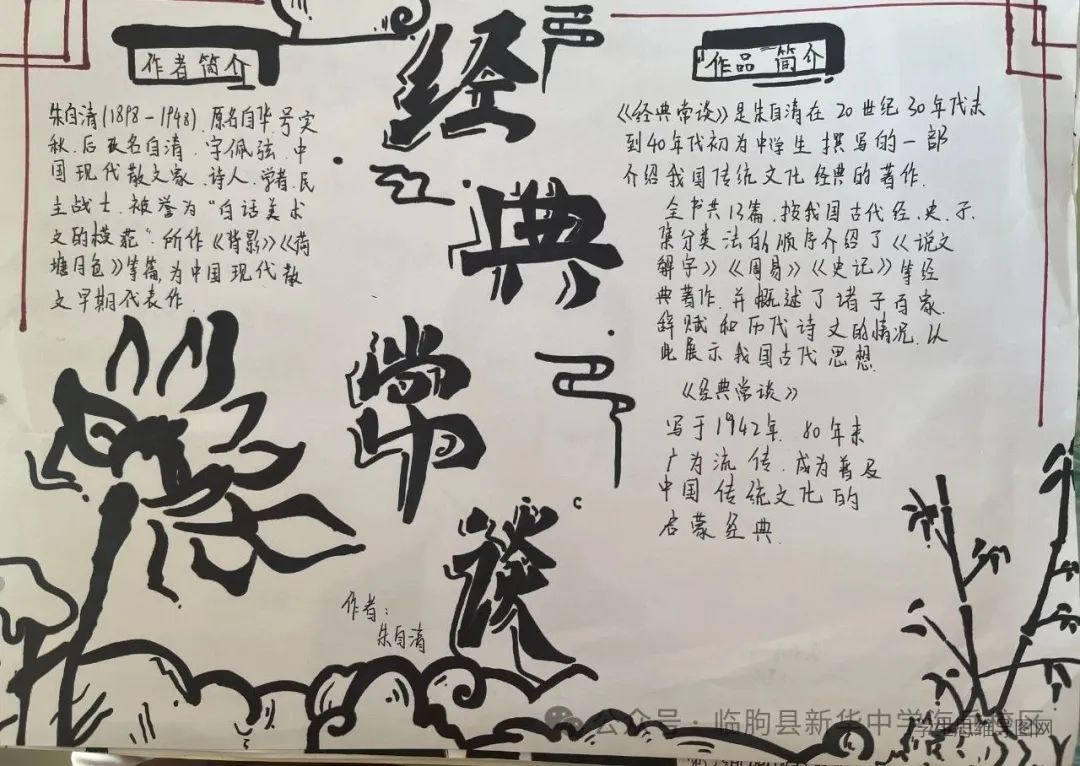 经典常谈
作者简介
朱自清(1898-1948).原名自华.号实
秋.后改名自清.字佩弦.中
国现代散文家.诗人.学者.民
主战士.被誉为“白话美术
文的模范”.所作《背影》《荷
塘月色》等篇,为中国现代散
文早期代表作.
作者:
朱自清
作品简介
《经典常谈》是朱自清在20世纪30年代末
到40年代初为中学生撰写的一部
介绍我国传统文化经典的著作.
全书共13篇.按我国古代经.史.子.
集分类法的顺序介绍了《说文
解字》《周易》《史记》等经
典著作.并概述了诸子百家.
辞赋和历代诗文的情况.以
此展示我国古代思想.
《经典常谈》
写于1942年.80年来
广为流传.成为普及
中国传统文化的
启蒙经典.
公众号·临朐县新华中学
思维导图网